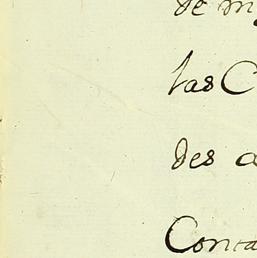 de m
las C
des a
Conta